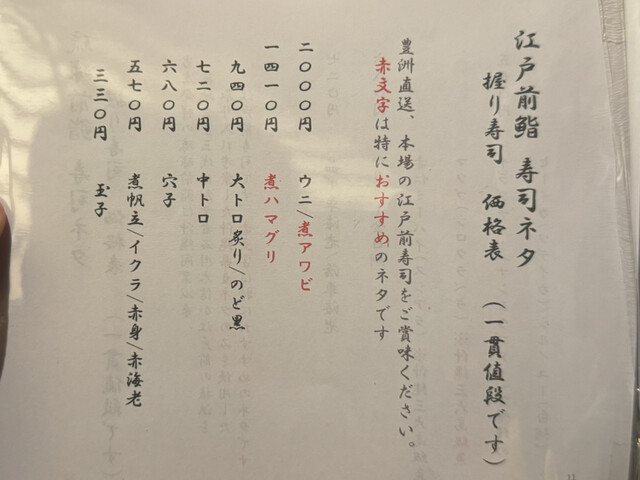 江戸前鮨 寿司ネタ
握り寿司 価格表 (一貫値段です)
豊洲直送、本場の江戸前寿司をご賞味ください。
赤文字は特におすすめのネタです
二〇〇〇円 ウニ/煮アワビ
一四一〇円 煮ハマグリ
九四〇円 大トロ炙り/のど黒
七二〇円 中トロ
六八〇円 穴子
五七〇円 煮帆立/イクラ/赤身/赤海老
三三〇円 玉子